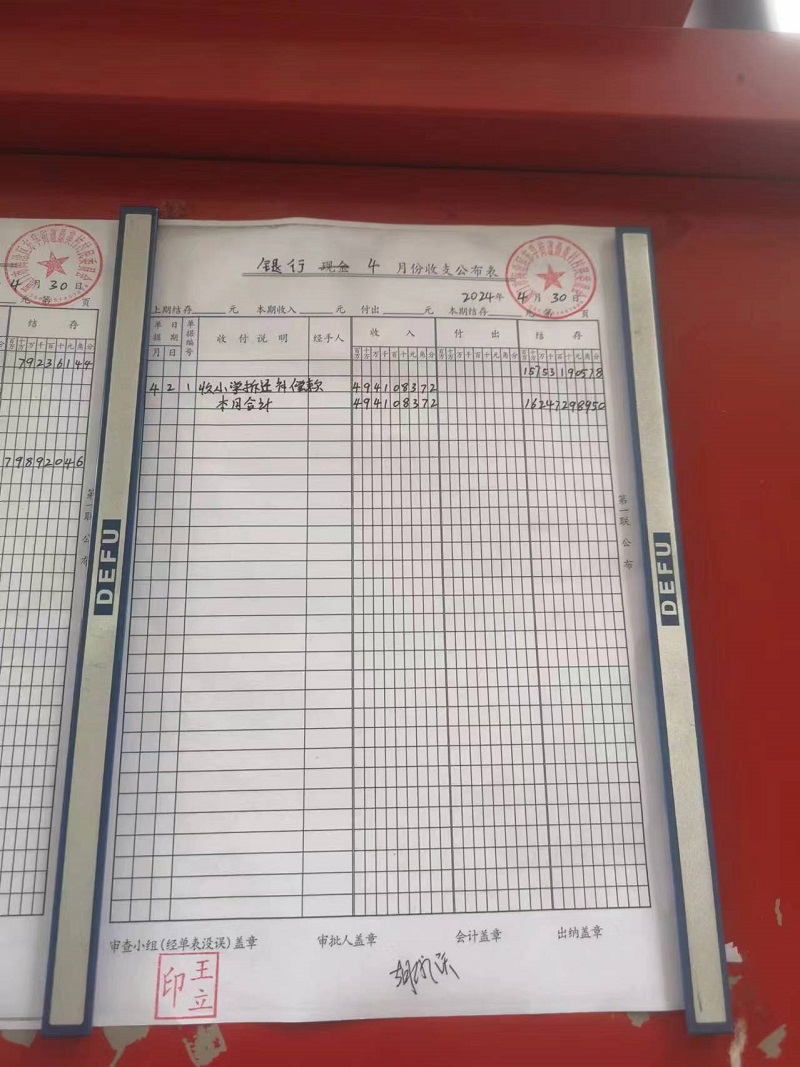 4月30日
元 第 页
结存
79236144
79892046
第一联 公布
DEFU
银行 现金 4 月份收支公布表
2024年 4月30日
上期结存 元 本期收入 元 付出 元 本期结存 元 第 页
单据 日期 单据编号 收付说明 经手人 收入 付出 结存
月 日 百十万千百十元角分 百十万千百十元角分 百十万千百十元角分
15753190578
4 2 1 收小学拆迁补偿款 494108372
本月合计 494108372 16247298950
第一联 公布
DEFU
审查小组(经单表设误)盖章 审批人盖章 会计盖章 出纳盖章
王立印